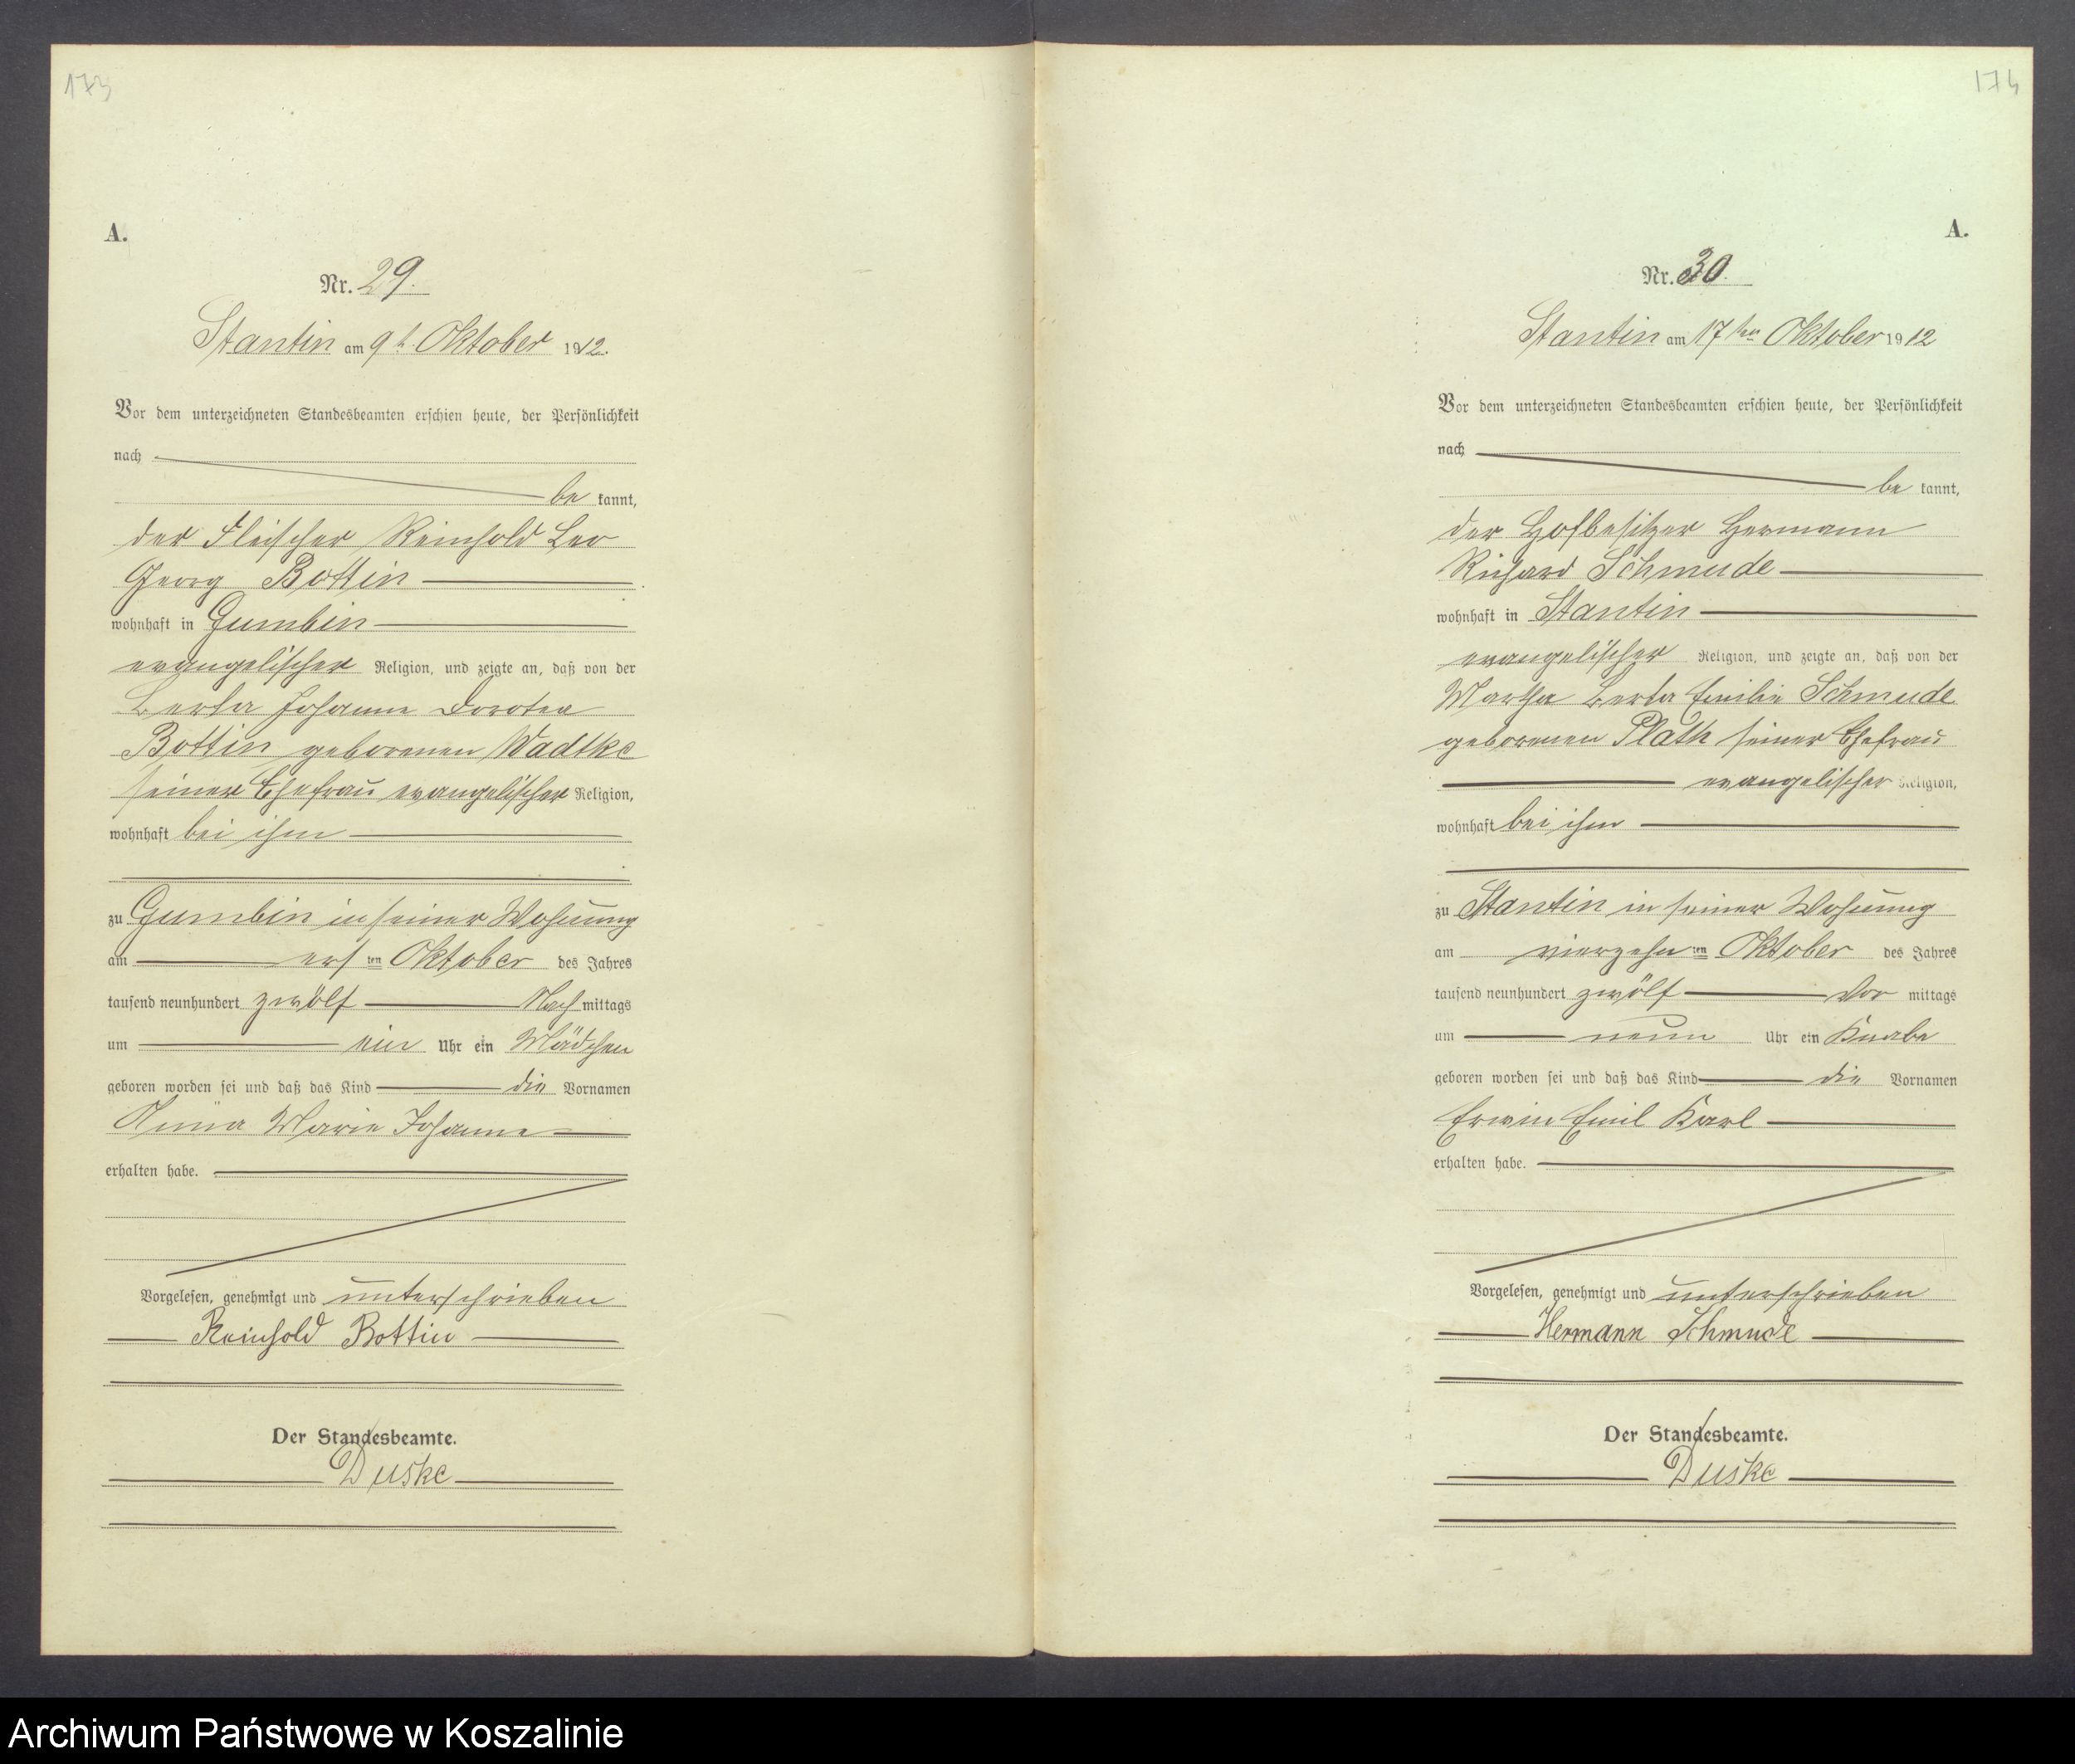 173
A.
Nr. 29.
Stantin am 9t. Oktober 1912.
Vor dem unterzeichneten Standesbeamten erschien heute, der Persönlichkeit
nach
be kannt,
der Fleischer Reinhold Leo
Georg Bottin
wohnhaft in Gumbin
evangelischer Religion, und zeigte an, daß von der
Berta Johanne Dorotea
Bottin geborenen Wadtke
seiner Ehefrau evangelischer Religion,
wohnhaft bei ihm
zu Gumbin in seiner Wohnung
am ersten Oktober des Jahres
tausend neunhundert zwölf Nach mittags
um ein Uhr ein Mädchen
geboren worden sei und daß das Kind die Vornamen
Anna Marie Johanne
erhalten habe.
Vorgelesen, genehmigt und unterschrieben
Reinhold Bottin
Der Standesbeamte.
Duske
174
A.
Nr. 30.
Stantin am 17ten Oktober 1912
Vor dem unterzeichneten Standesbeamten erschien heute, der Persönlichkeit
nach
be kannt,
der Hofbesitzer Hermann
Richard Schmude
wohnhaft in Stantin
evangelischer Religion, und zeigte an, daß von der
Martha Berta Emilie Schmude
geborenen Plath seiner Ehefrau
evangelischer Religion,
wohnhaft bei ihm
zu Stantin in seiner Wohnung
am vierzehnten Oktober des Jahres
tausend neunhundert zwölf Vor mittags
um neun Uhr ein Knabe
geboren worden sei und daß das Kind die Vornamen
Erwin Emil Karl
erhalten habe.
Vorgelesen, genehmigt und unterschrieben
Hermann Schmude
Der Standesbeamte.
Duske
Archiwum Państwowe w Koszalinie